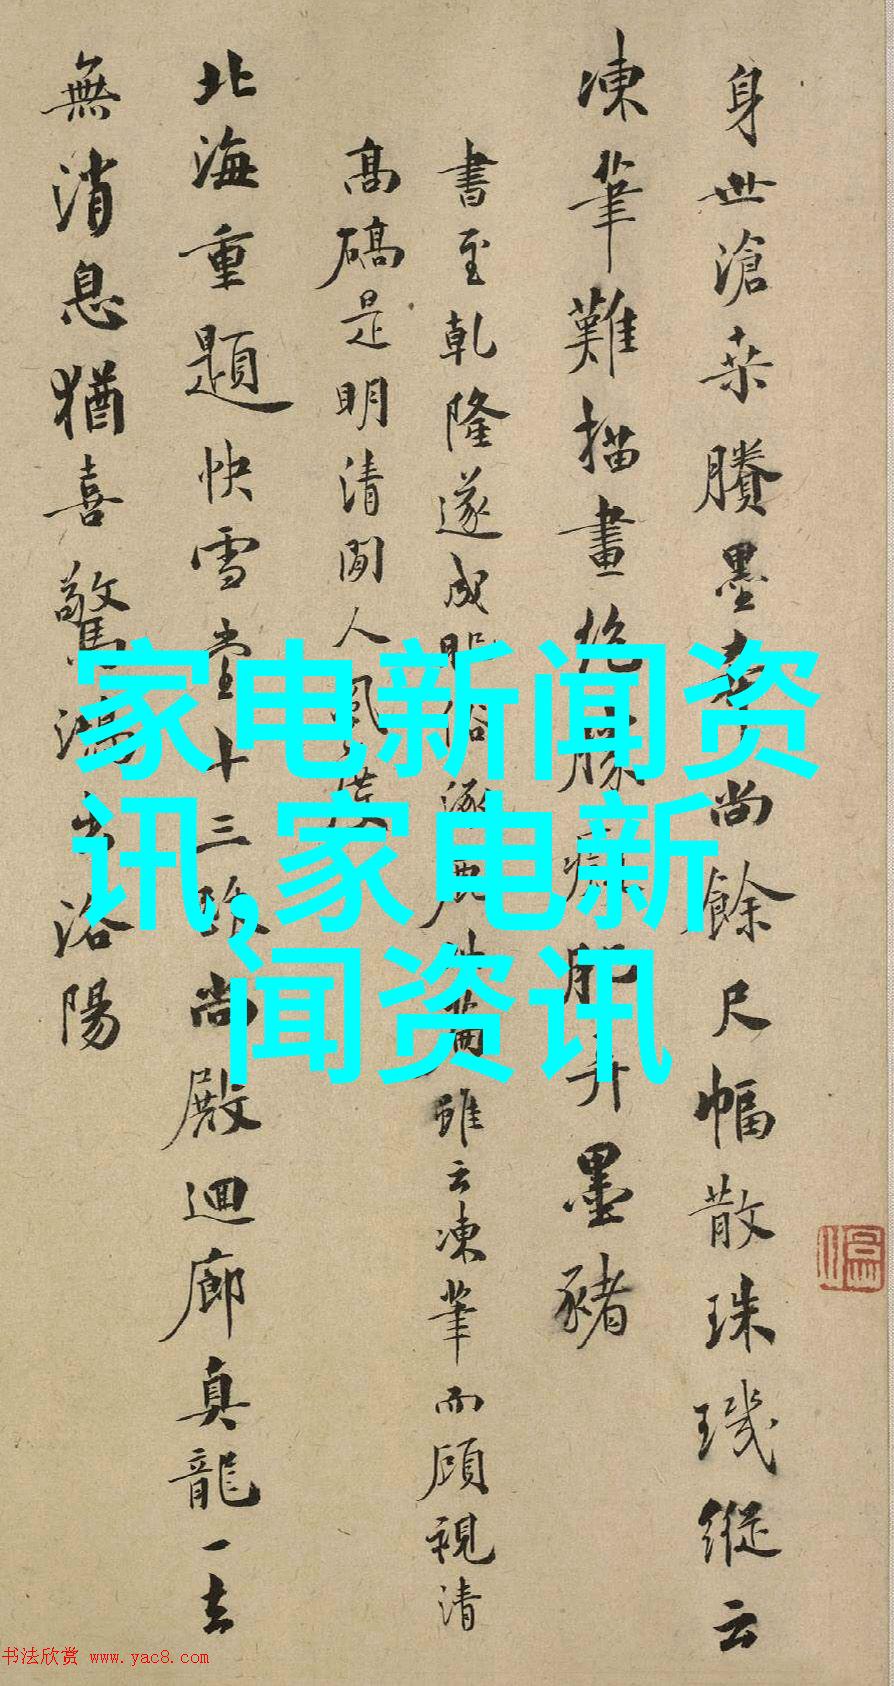 身世滄桒賸墨 尚餘尺幅散珠璣縱云
凍筆難描畫 勝 肥升墨豬
書至乾隆遂成 俗 雖云凍筆而顧視清
高碻是明清間人風
北海重題快雪堂十三 尚殿迴廊真龍一去
無消息猶喜驚鴻出洛陽
家电新闻资
讯,家电新
闻资讯
书法欣赏 www.yac8.com